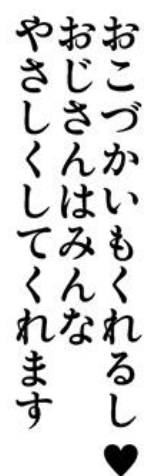 おこづかいもくれるし♥
おじさんはみんな
やさしくしてくれます